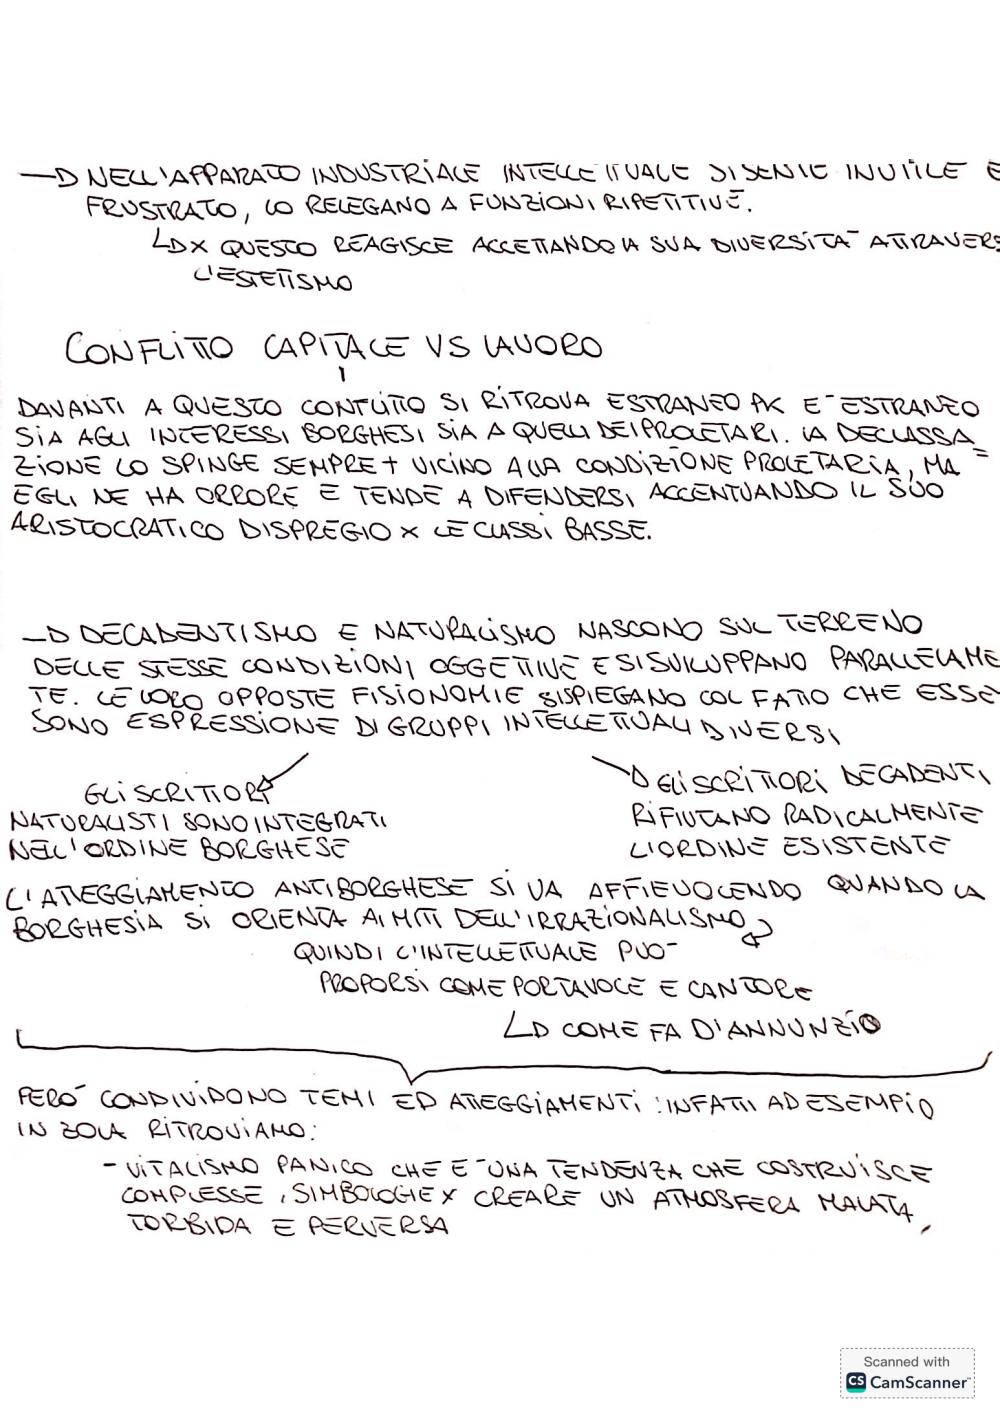 → NELL'APPARATO INDUSTRIALE INTELLETTUALE SI SENTE INUTILE E
FRUSTRATO, LO RELEGANO A FUNZIONI RIPETITIVE.
↳ X QUESTO REAGISCE ACCETTANDO LA SUA DIVERSITA' ATTRAVERS
L'ESTETISMO
CONFLITTO CAPITALE VS LAVORO
DAVANTI A QUESTO CONFLITTO SI RITROVA ESTRANEO PK E' ESTRANEO
SIA AGLI INTERESSI BORGHESI SIA A QUELLI DEI PROLETARI. LA DECLASSA=
ZIONE LO SPINGE SEMPRE + VICINO ALLA CONDIZIONE PROLETARIA, MA
EGLI NE HA ORRORE E TENDE A DIFENDERSI ACCENTUANDO IL SUO
ARISTOCRATICO DISPREGIO X LE CLASSI BASSE.
→ DECADENTISMO E NATURALISMO NASCONO SUL TERRENO
DELLE STESSE CONDIZIONI OGGETTIVE E SI SVILUPPANO PARALLELAME
TE. LE LORO OPPOSTE FISIONOMIE SI SPIEGANO COL FATTO CHE ESSE
SONO ESPRESSIONE DI GRUPPI INTELLETTUALI DIVERSI
GLI SCRITTORI
NATURALISTI SONO INTEGRATI
NELL'ORDINE BORGHESE
GLI SCRITTORI DECADENTI
RIFIUTANO RADICALMENTE
L'ORDINE ESISTENTE
L'ATTEGGIAMENTO ANTIBORGHESE SI VA AFFIEVOLENDO QUANDO LA
BORGHESIA SI ORIENTA AI MITI DELL'IRRAZIONALISMO
QUINDI L'INTELLETTUALE PUO'
PROPORSI COME PORTAVOCE E CANTORE
↳ COME FA D'ANNUNZIO
PERO' CONDIVIDONO TEMI ED ATTEGGIAMENTI: INFATTI AD ESEMPIO
IN ZOLA RITROVIAMO:
- VITALISMO PANICO CHE E' UNA TENDENZA CHE COSTRUISCE
COMPLESSE SIMBOLOGIE X CREARE UN ATMOSFERA MALATA,
TORBIDA E PERVERSA
Scanned with
CS CamScanner